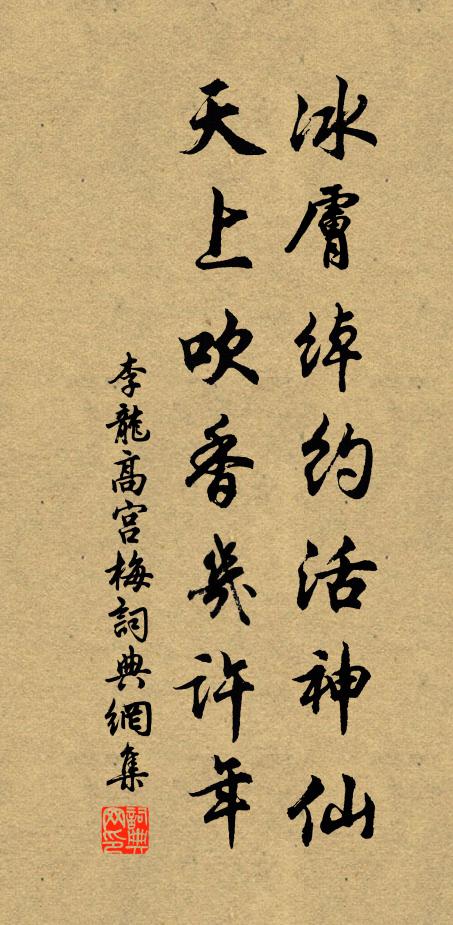 冰膚綽約活神仙
天上吹香幾許年
李龍高宮梅詞典網集
詞典网印